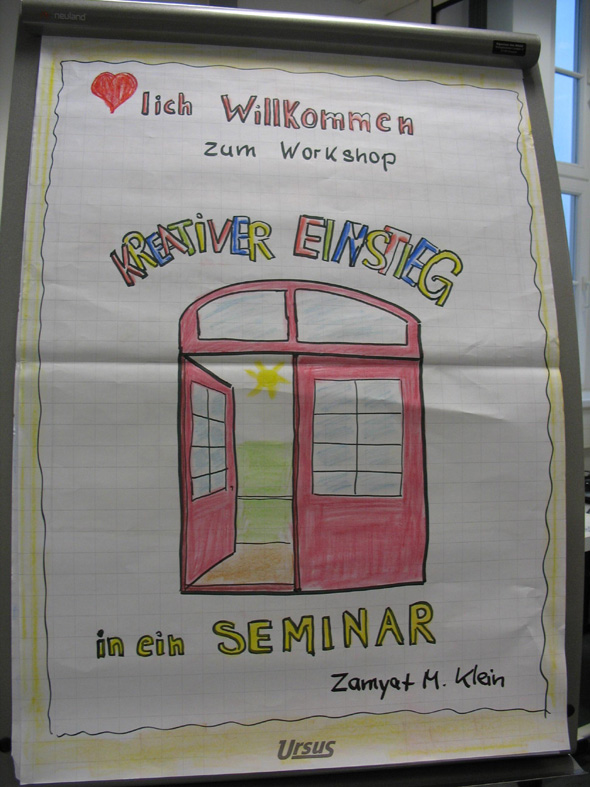 neuland
❤lich Willkommen
zum Workshop
KREATIVER EINSTIEG
in ein SEMINAR
Zamyat M. Klein
Ursus